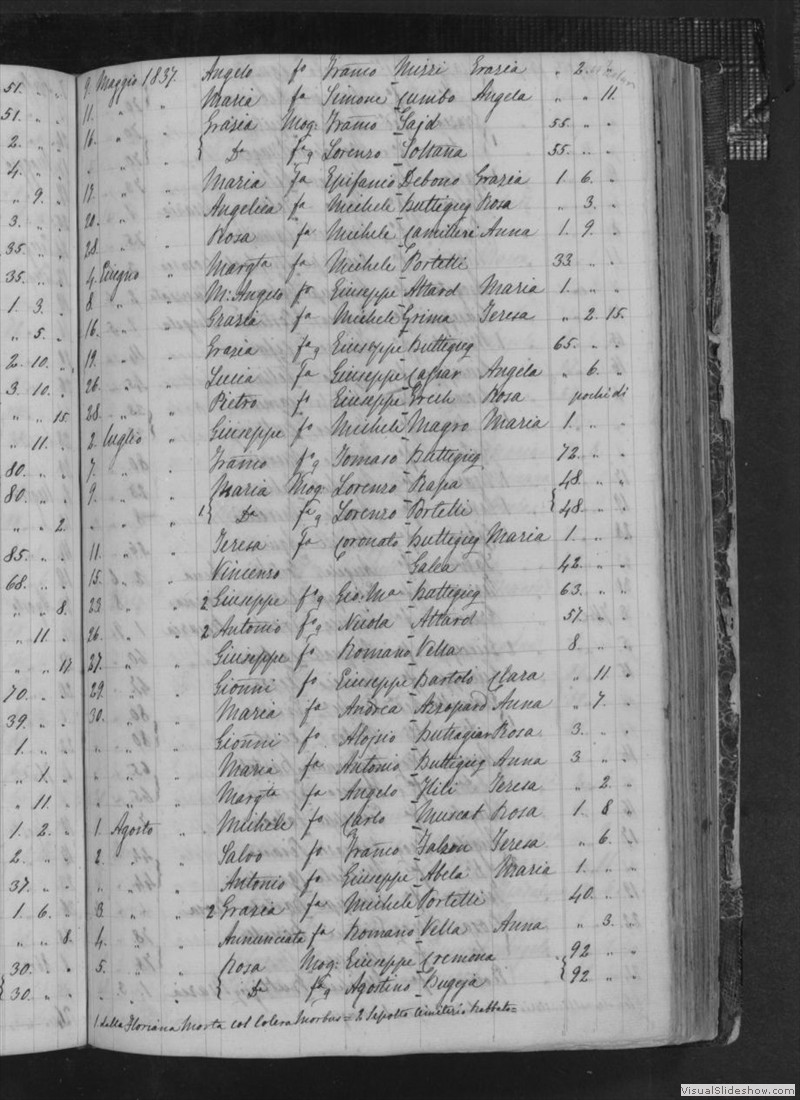 51. " .
51. " .
2. " .
4. " .
" 9. "
3. " .
35. " .
35. " .
1. 3. "
" 5. "
2. 10. "
3. 10. "
" " 15
" 11. .
80. " .
80. " .
" " 2.
85. " .
68. " .
" " 8.
" 11. .
" " 17.
70. " .
39. " .
1. " .
" 1. .
" 11. .
1. 2. "
2. " .
37. " .
1. 6. "
" " 8.
30. " .
30. " .
9. Maggio 1837. Angelo fo Franco Mizzi Grazia " 2.
11. " " Maria fa Simone Cumbo Angela " " 11
16. " " Grazia Mog: Franco Sajd 55. " .
Da fa q Lorenzo Soltana 55. " .
17. " " Maria fa Epifanio Debono Grazia 1. 6. "
20. " " Angelica fa Michele Buttigieg Rosa " 3. "
28. " " Rosa fa Michele Camilleri Anna 1. 9. "
4. Giugno " Margta fa Michele Portelli 33. " .
8. " " M: Angelo fo Giuseppe Attard Maria 1. " "
16. " " Grazia fa Michele Grima Teresa " 2. 15.
19. " " Grazia fa q Giuseppe Buttigieg 65. " .
26. " " Lucia fa Giuseppe Caspar Angela " 6. "
28. " " Pietro fo Giuseppe Grech Rosa pochi di
2. Luglio " Giuseppe fo Michele Magro Maria 1. " "
7. " " Franco fo q Tomaso Buttigieg 72. " "
9. " " Maria Mog: Lorenzo Rapa 48. " "
" " " 1 Da fa q Lorenzo Portelli 48. " "
11. " " Teresa fa Coronato Buttigieg Maria 1. " "
15. " " Vincenzo Galea 42. " "
23 " " 2 Giuseppe fo q Gio: Ma Buttigieg 63. " "
26. " " 2 Antonio fo q Nicola Attard 57. " "
27. " " Giuseppe fo Romano Vella 8 " "
29. " " Gionni fo Giuseppe Bartolo Clara " 11 "
30. " " Maria fa Andrea Azzopard Anna " 7. "
" " " Gionni fo Aloysio Buttagiar Rosa 3. " "
" " " Maria fa Antonio Buttigieg Anna 3 " "
" " " Margta fa Angelo Xili Teresa " 2. "
1. Agosto " Michele fo Carlo Muscat Rosa 1. 8 "
2. " " Salvo fo Franco Falzon Teresa " 6. "
" " " Antonio fo Giuseppe Abela Maria 1. " "
3. " " 2 Grazia fa Michele Portelli 40. " "
4. " " Annunciata fa Romano Vella Anna " 3. "
5. " " Rosa Mog: Giuseppe Cremona 92 " "
" " " Da fa q Agostino Bugeja 92 " "
1 della Floriana Morta col Colera Morbus = 2 Sepolto Cimiterio Rabbato =
VisualSlideshow.com